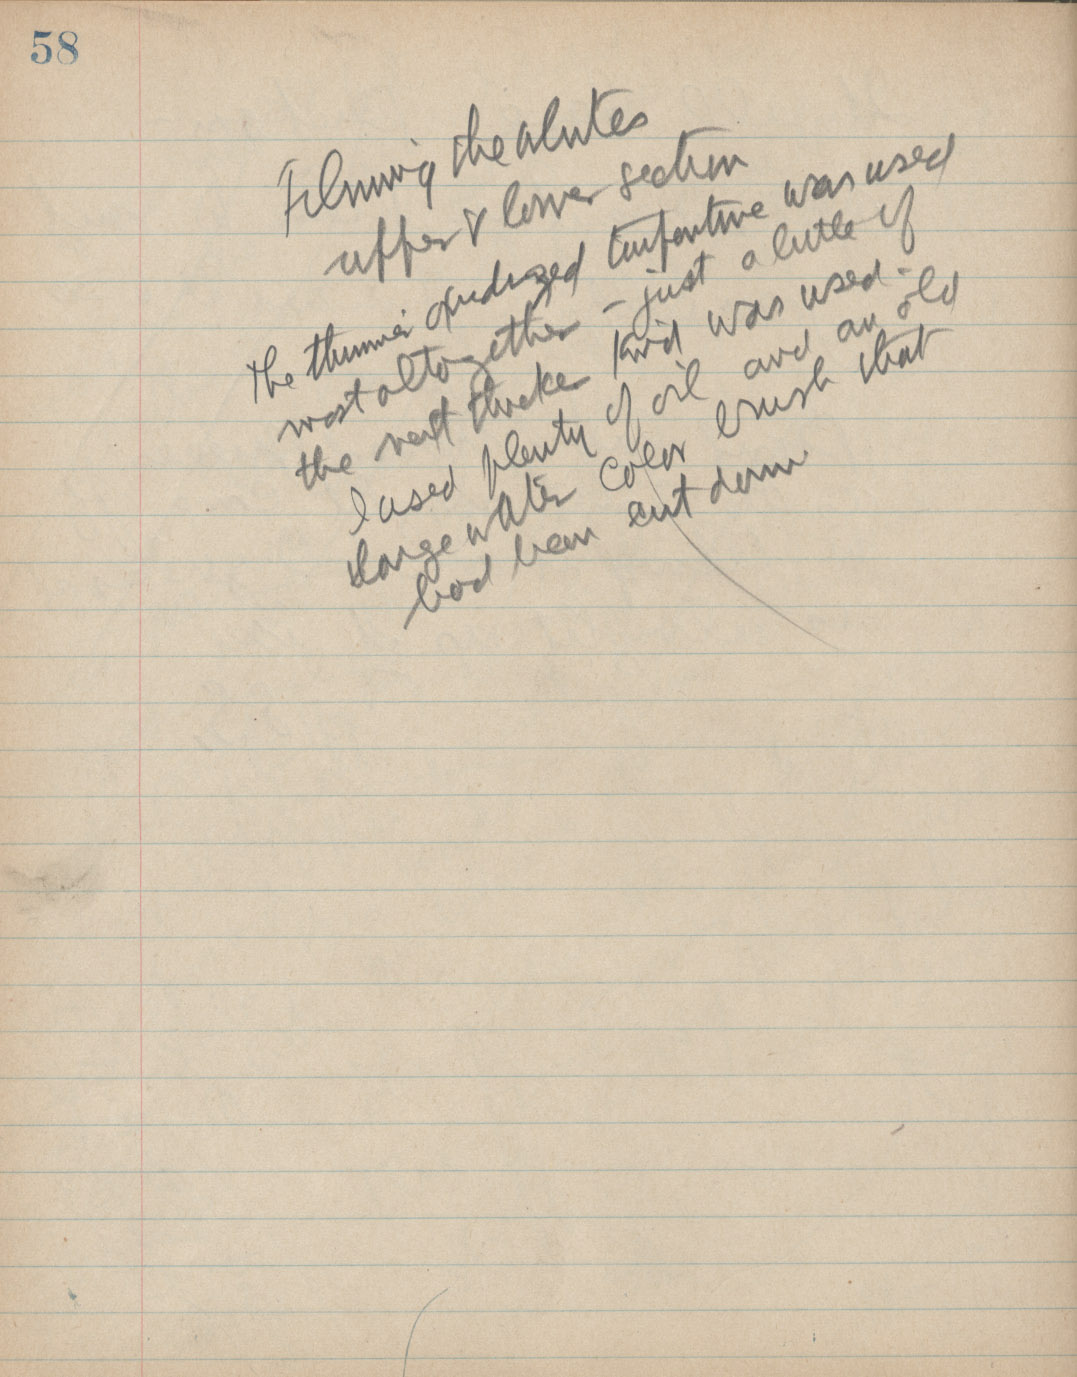 58
Filming the whites
upper & lower section
The thinner oxidized turpentine was used
most altogether - just a little of
the next thicker kind was used.
I used plenty of oil and an old
large water color brush that
had been cut down